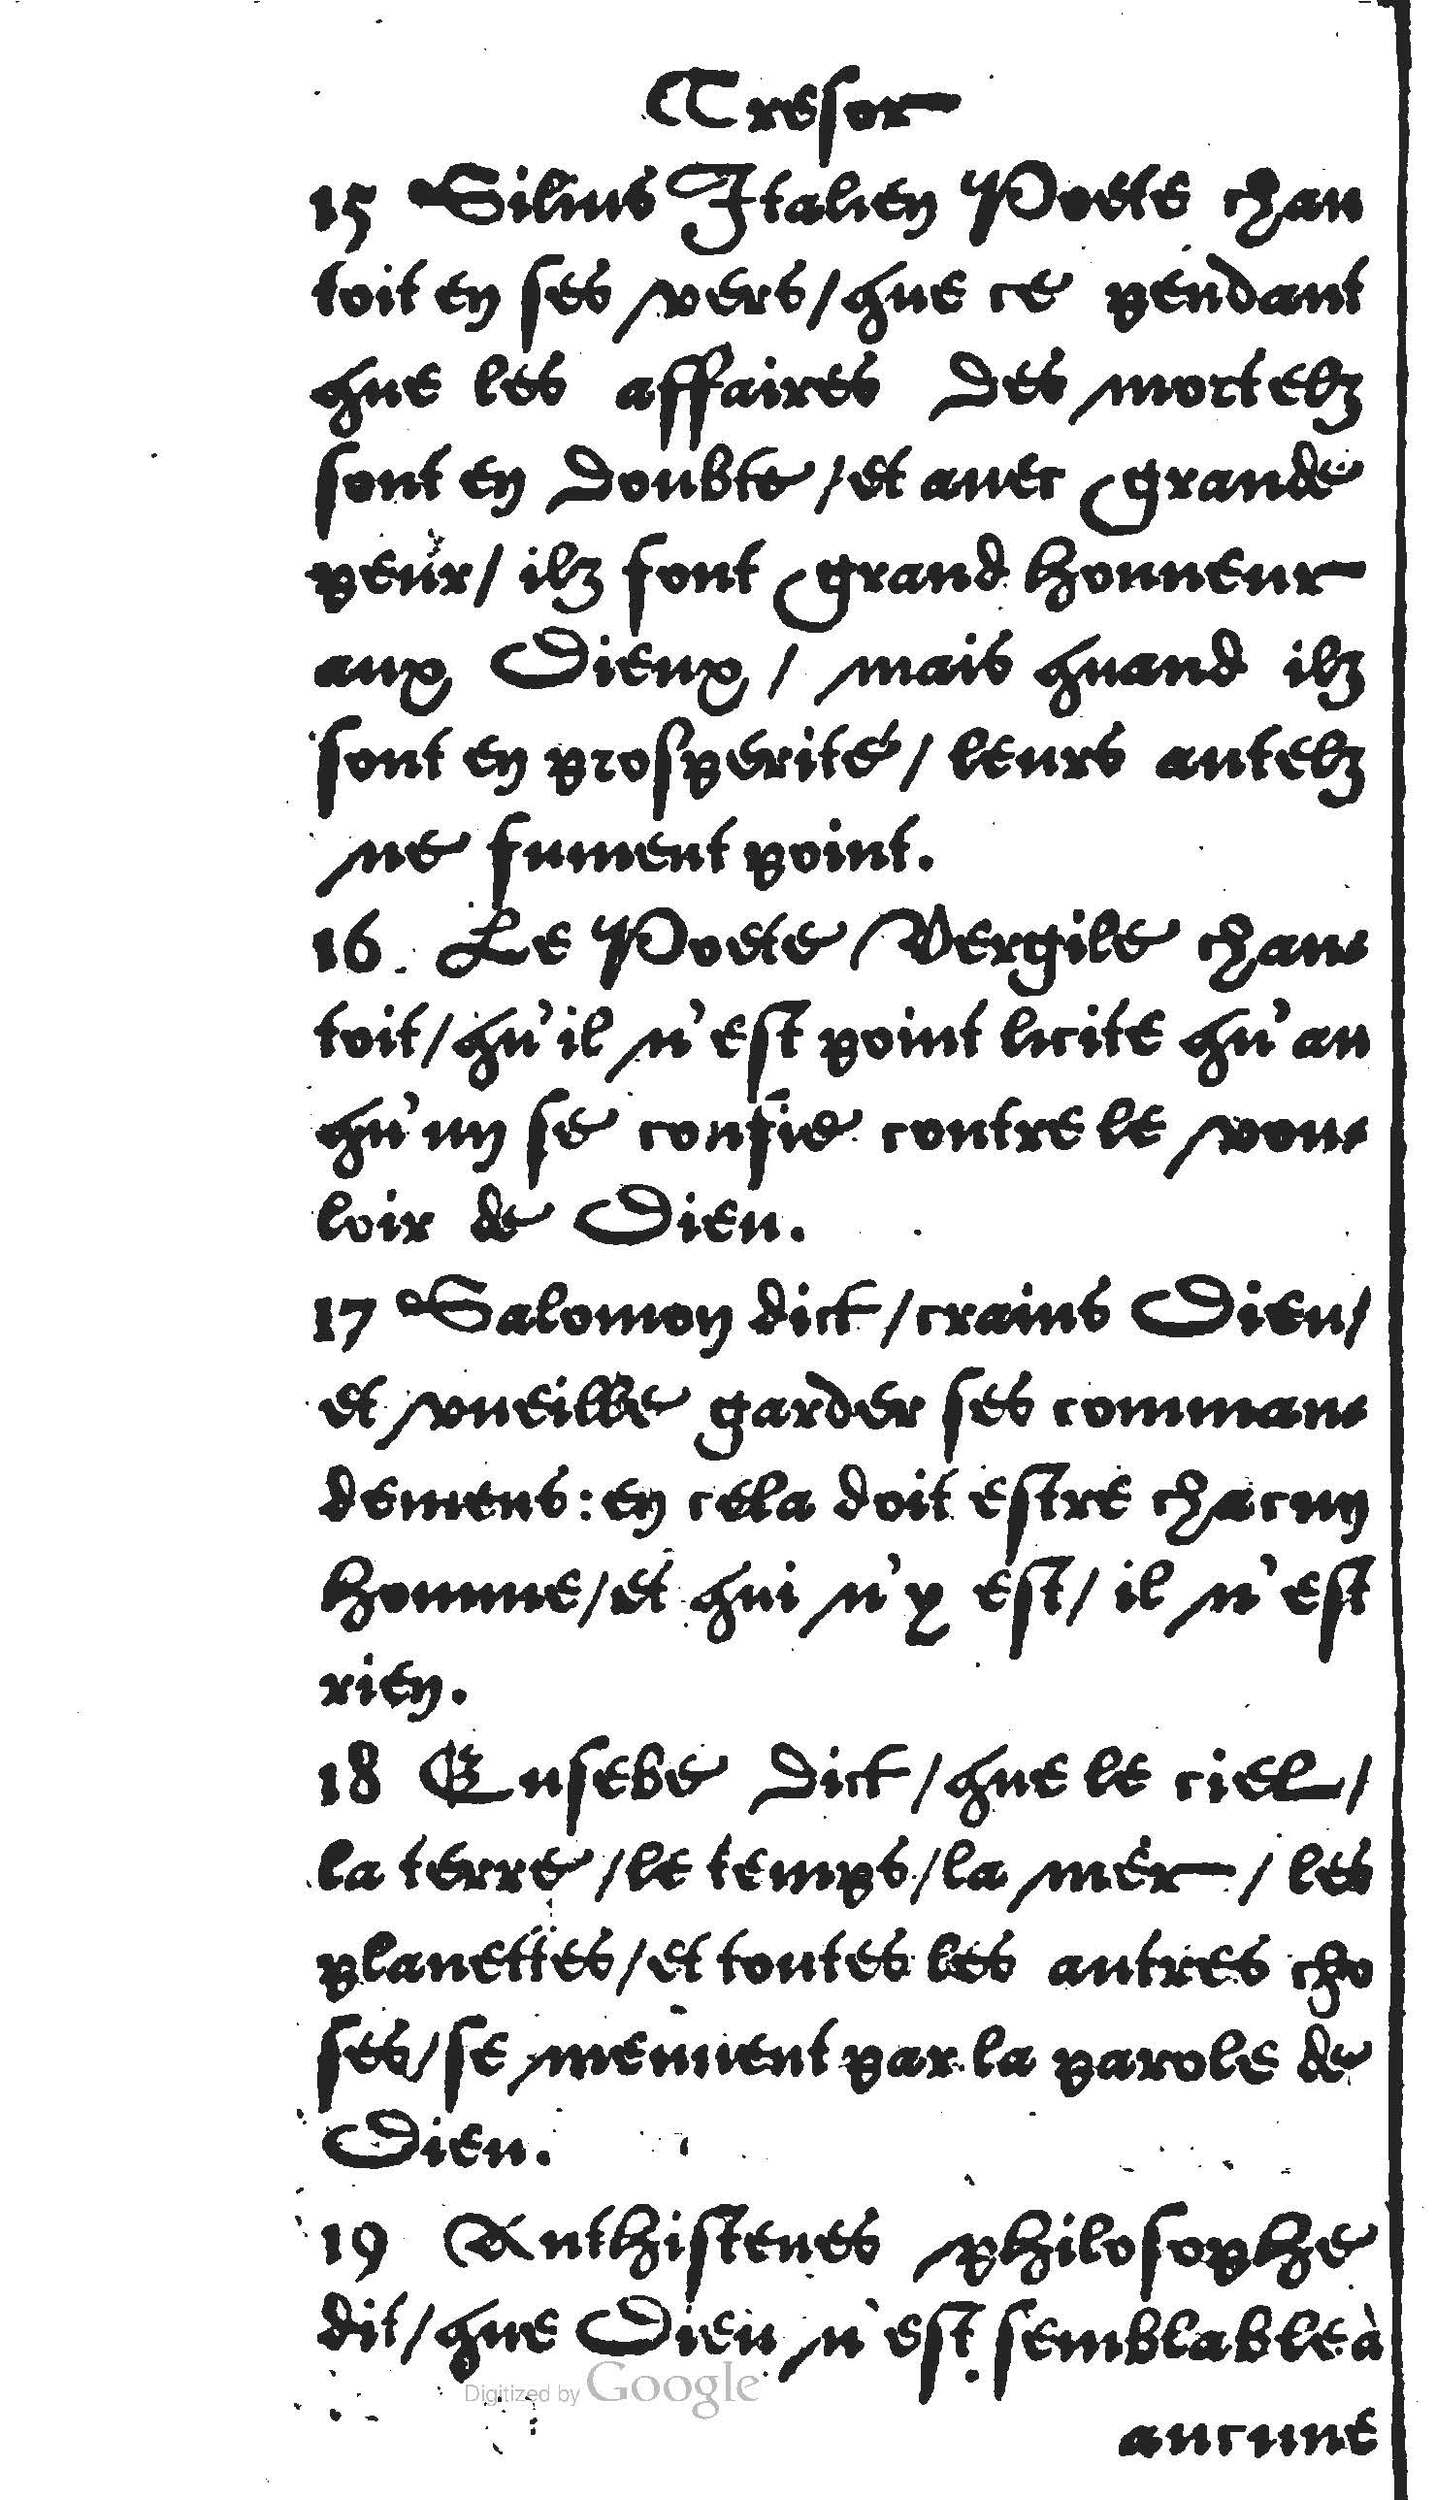 Tresor
15 Silius Italien Poete chan
toit en ses vers/que ce pendant
que les affaires des mortelz
sont en doubte/et auec grande
peur/ ilz font grand honneur
aux Dieux/ mais quand ilz
sont en prosperité/ leurs autelz
ne fument point.
16. Le Poete Vergile chan-
toit/qu'il n'est point licite qu'au
qu'un se confie contre le vou-
loir de Dieu.
17 Salomon dict/crains Dieu/
et vueille garder ses comman-
demens: en cela doit estre chacun
homme/et qui n'y est/ il n'est
rien.
18 Eusebe dict/que le ciel/
la terre/le temps/la mer/ les
planettes/et toutes les autres cho
ses/se meuuent par la parole de
Dieu.
19 Anthistenes philosophe
dit/que Dieu n'est semblable à
Digitized by Google
aucune